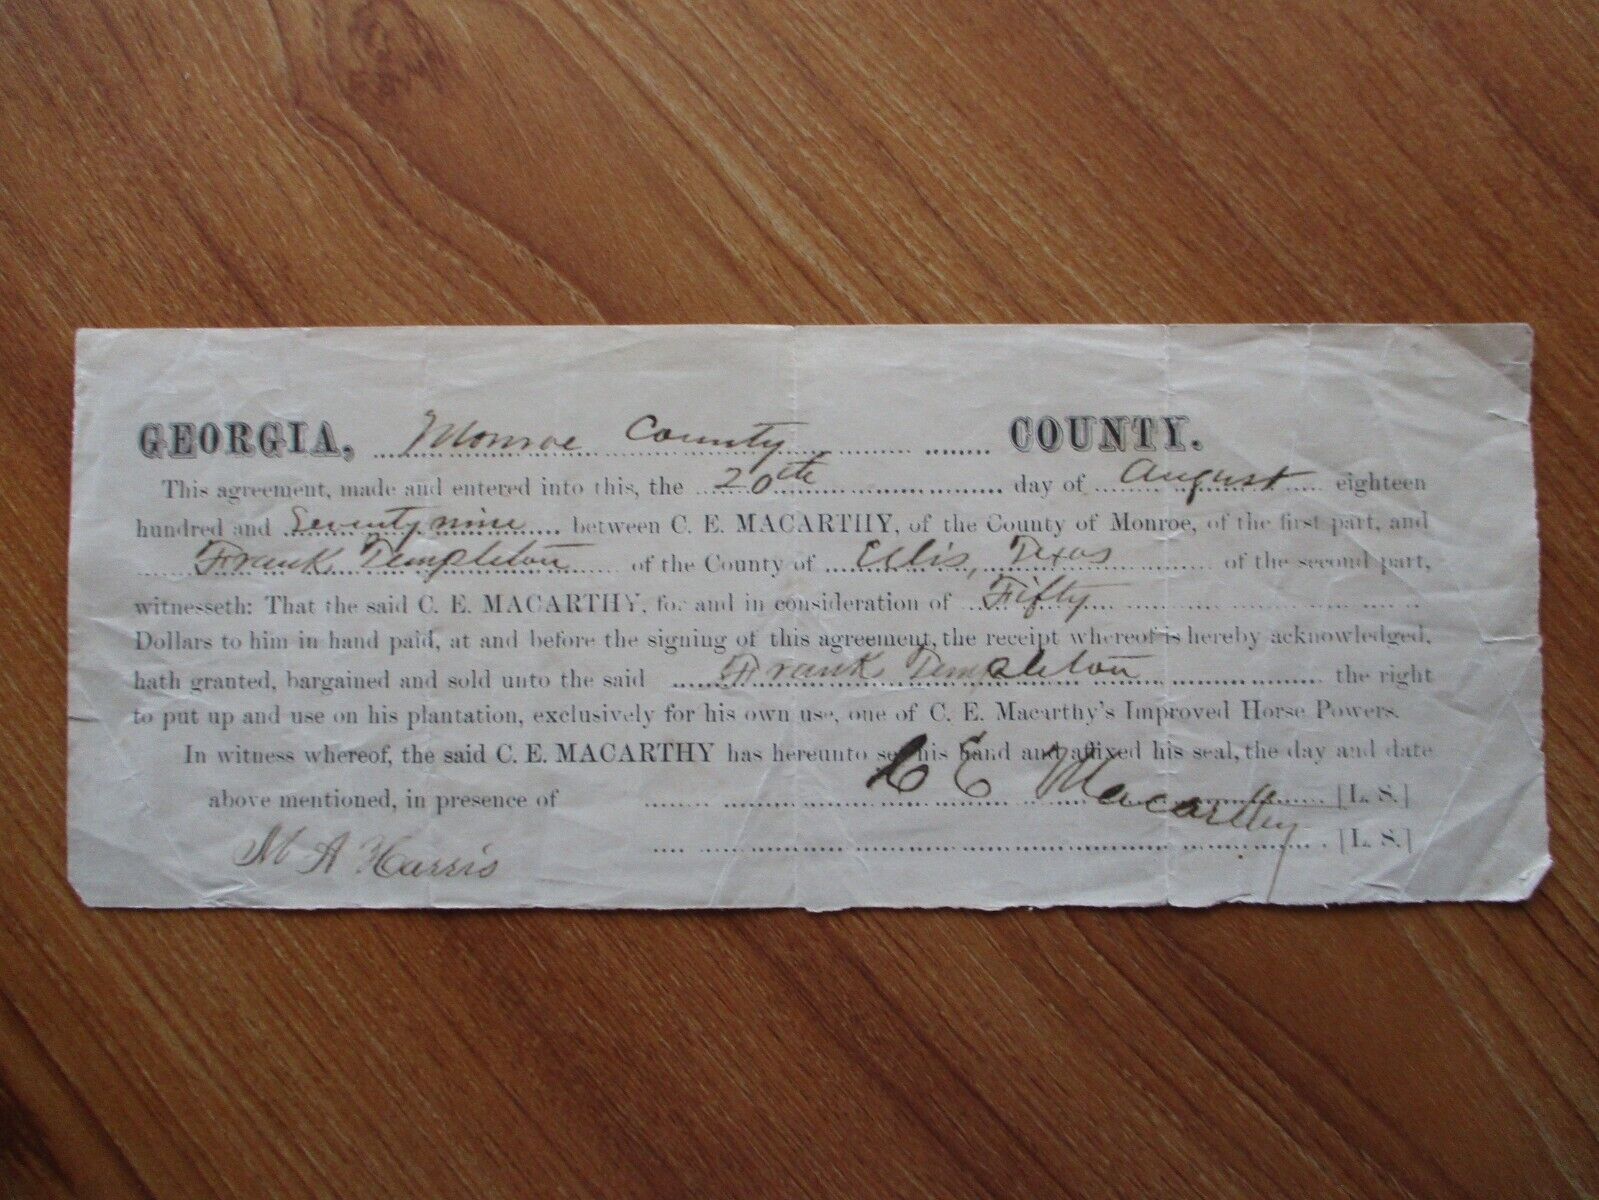 GEORGIA, Monroe County COUNTY.
This agreement, made and entered into this, the 20th day of August eighteen
hundred and Seventy nine between C. E. MACARTHY, of the County of Monroe, of the first part, and
Frank Templeton of the County of Ellis, Texas of the second part,
witnesseth: That the said C. E. MACARTHY, for and in consideration of Fifty
Dollars to him in hand paid, at and before the signing of this agreement, the receipt whereof is hereby acknowledged,
hath granted, bargained and sold unto the said Frank Templeton the right
to put up and use on his plantation, exclusively for his own use, one of C. E. Macarthy's Improved Horse Powers.
In witness whereof, the said C. E. MACARTHY has hereunto set his hand and affixed his seal, the day and date
above mentioned, in presence of C E Macarthy [L. S.]
M A Harris [L. S.]